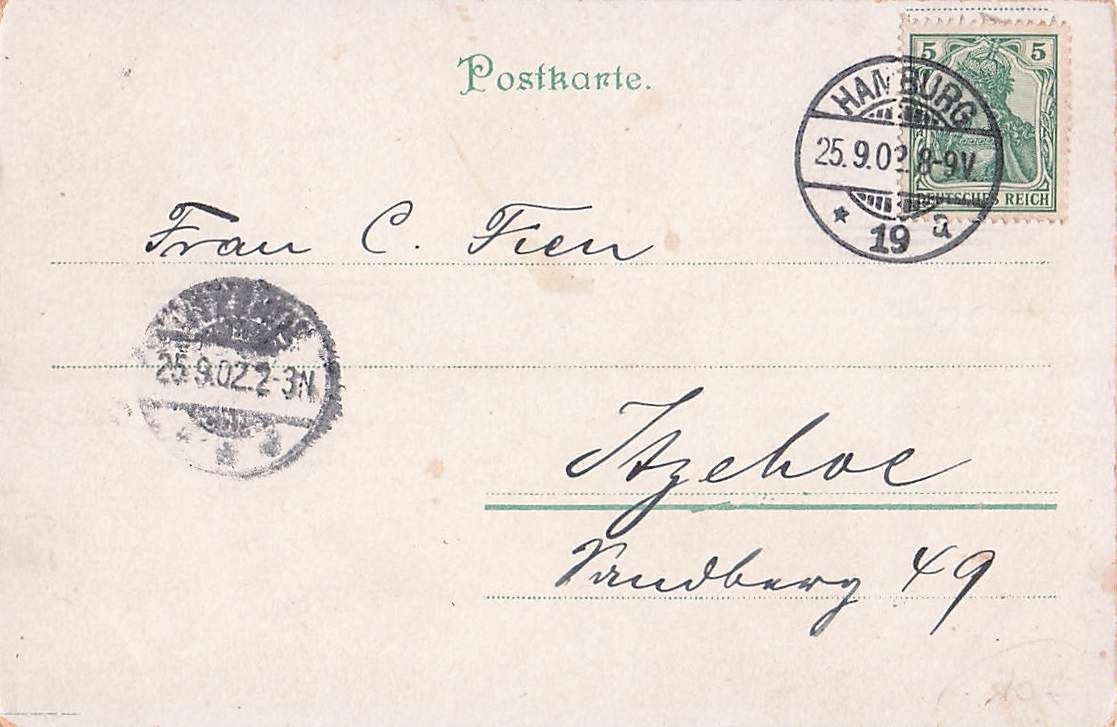 Postkarte.
5 5
DEUTSCHES REICH
HAMBURG
25.9.02.8-9V
* 19 a
Frau C. Fien
25.9.02.2-3N
Itzehoe
Sandberg 49